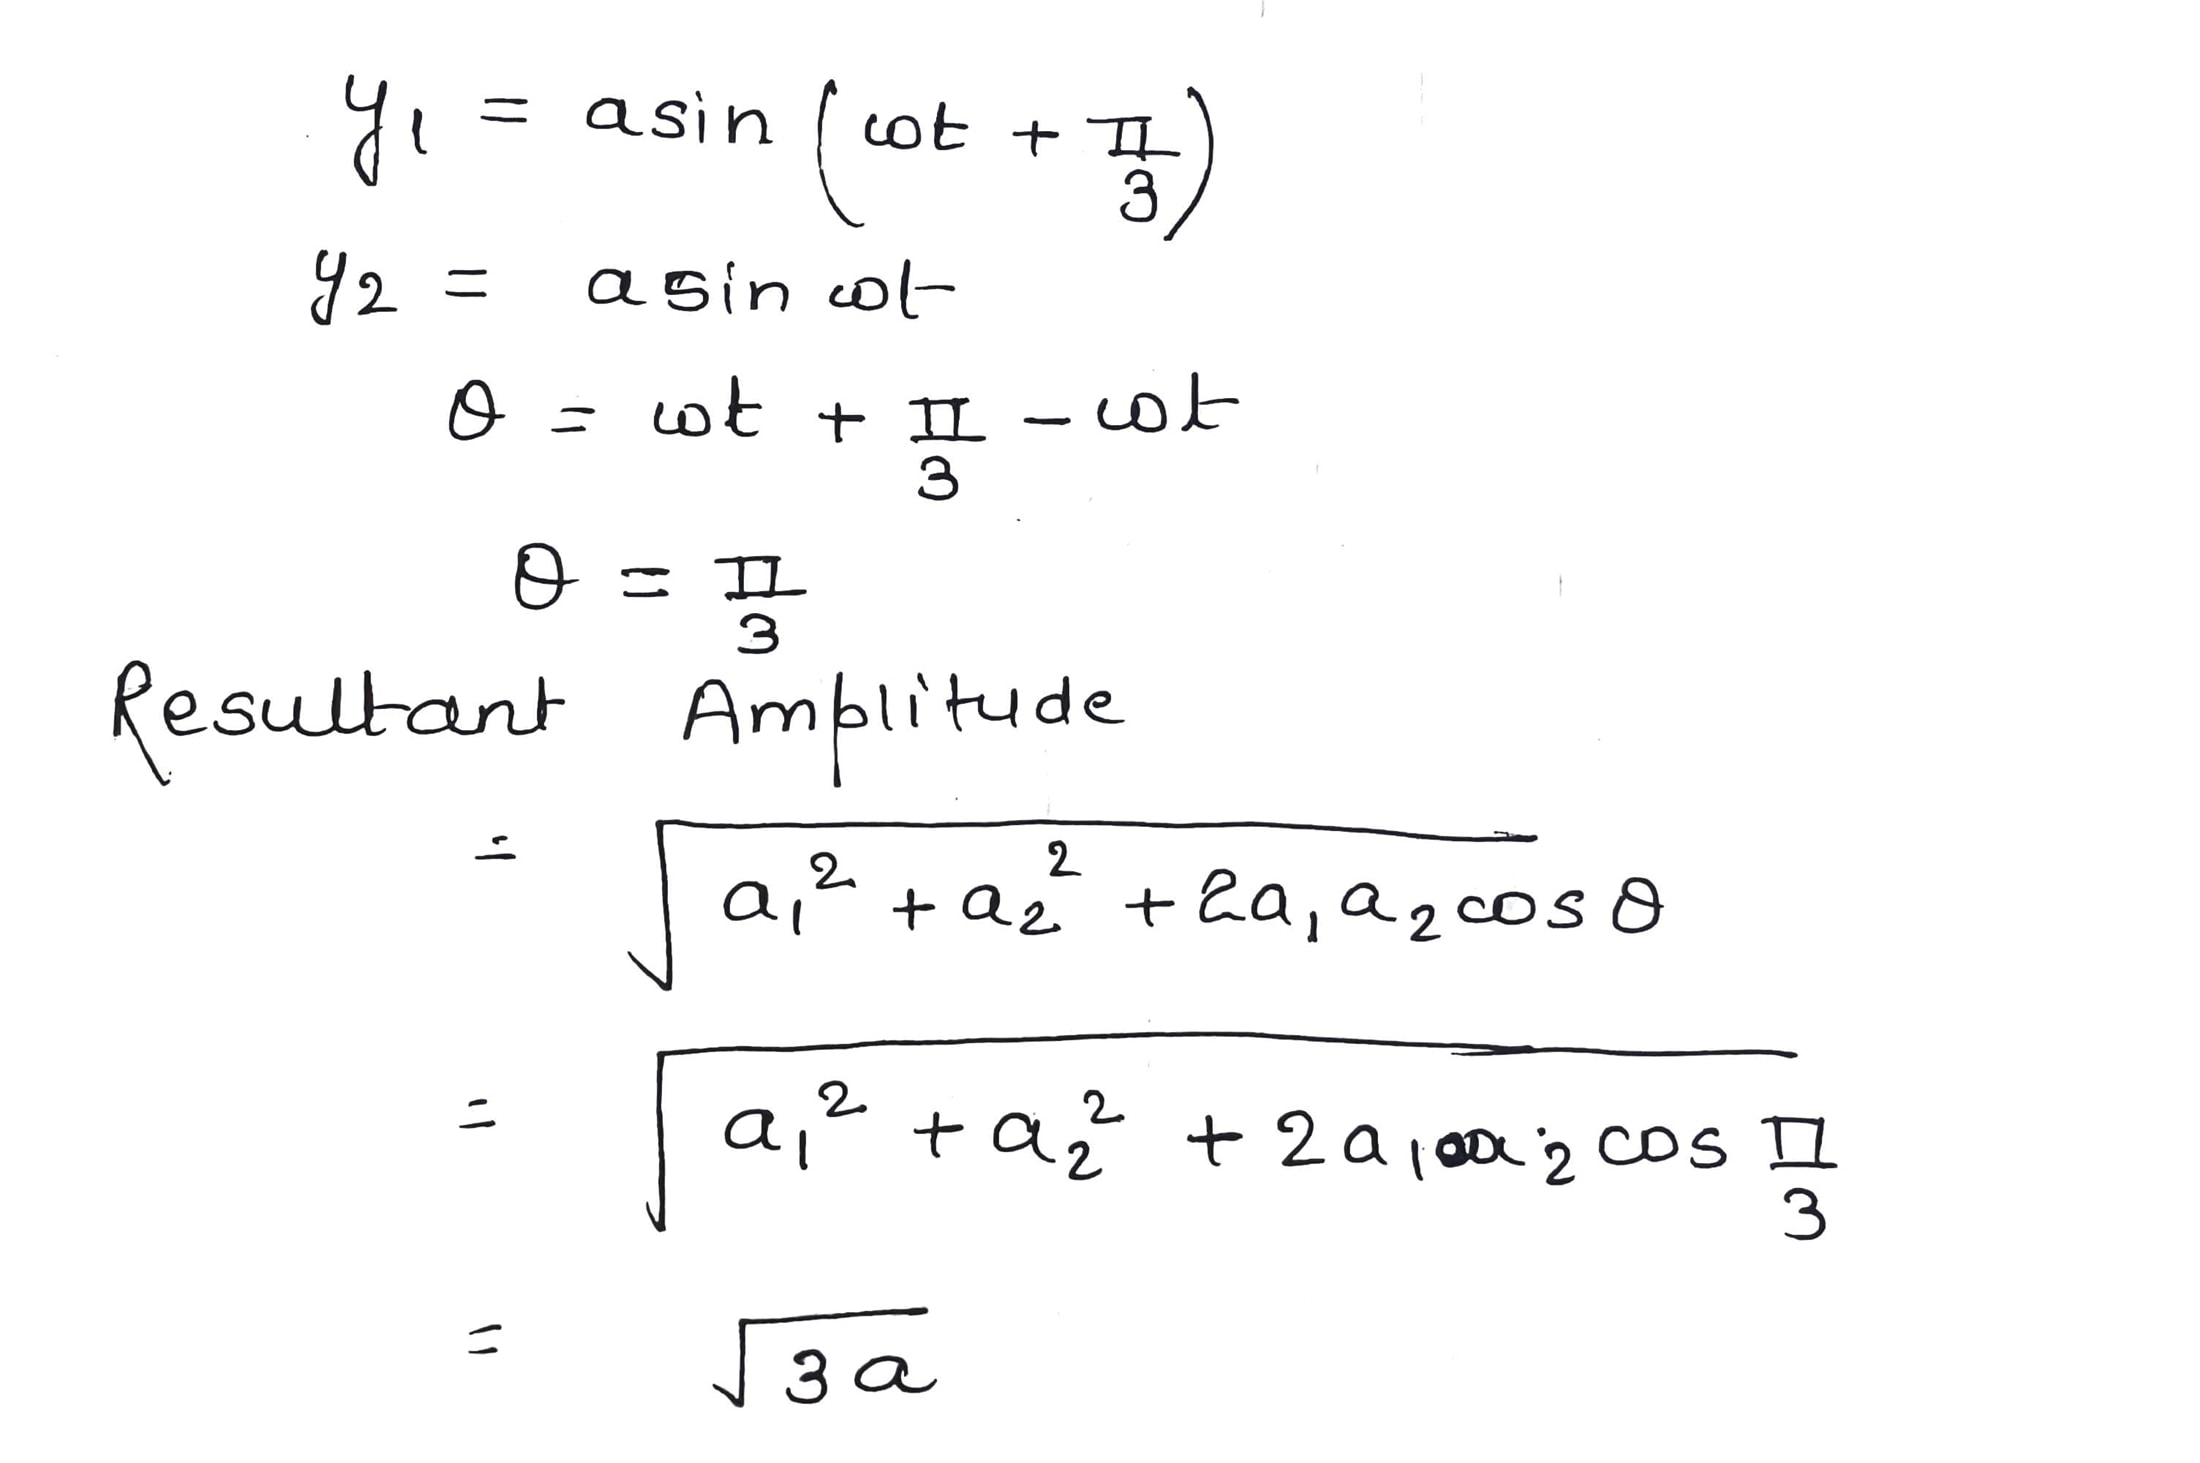 y₁ = a sin (ωt + π/3)
y₂ = a sin ωt
θ = ωt + π/3 - ωt
θ = π/3
Resultant Amplitude
= √(a₁² + a₂² + 2a₁a₂ cos θ)
= √(a₁² + a₂² + 2a₁a₂ cos π/3)
= √3a